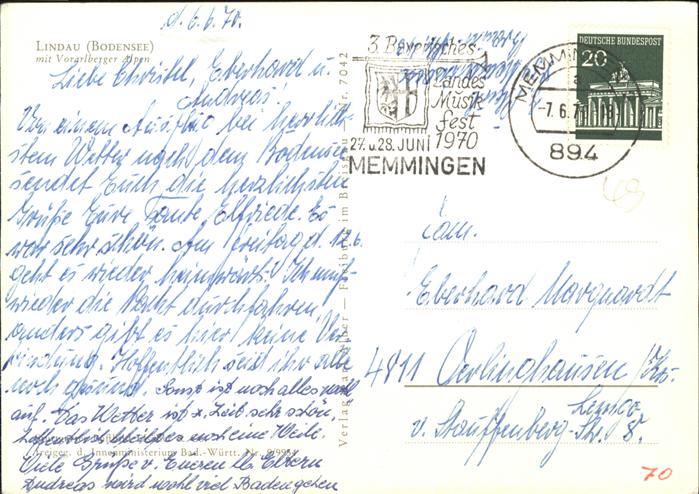 d. 6.6.70.
LINDAU (BODENSEE)
mit Vorarlberger Alpen
Liebe Christel, Eberhard u.
Andreas!
Von einem Ausflug bei herrlich-
stem Wetter nach dem Bodensee
sendet Euch die herzlichsten
Grüße Eure Tante Elfriede. Es
war sehr schön. Am Freitag d. 12.6.
geht es wieder heimwärts. Ich muß
wieder die Nacht durchfahren,
anders gibt es hier keine Ver-
bindung. Hoffentlich seid ihr alle
noch gesund. Sonst ist noch alles wohl
auf. Das Wetter ist z. Zeit sehr schön,
hoffentlich bleibt es noch eine Weile.
Viele Grüße v. Eueren lb. Eltern
Andreas wird wohl viel Baden gehen
Freigeg. d. Innenministerium Bad.-Württ. Nr.
Verlag Karl Alber — Freiburg im Breisgau — Nr. 7042
3. Bayerisches
Landes
Musik
fest
1970
27. u. 28. JUNI
MEMMINGEN
DEUTSCHE BUNDESPOST
20
MEMMINGEN
a
-7.6.70
894
69
Fam.
Eberhard Marquardt
4811 Oerlinghausen/Krs.
Lemgo
v. Stauffenberg-Str. 8.
70